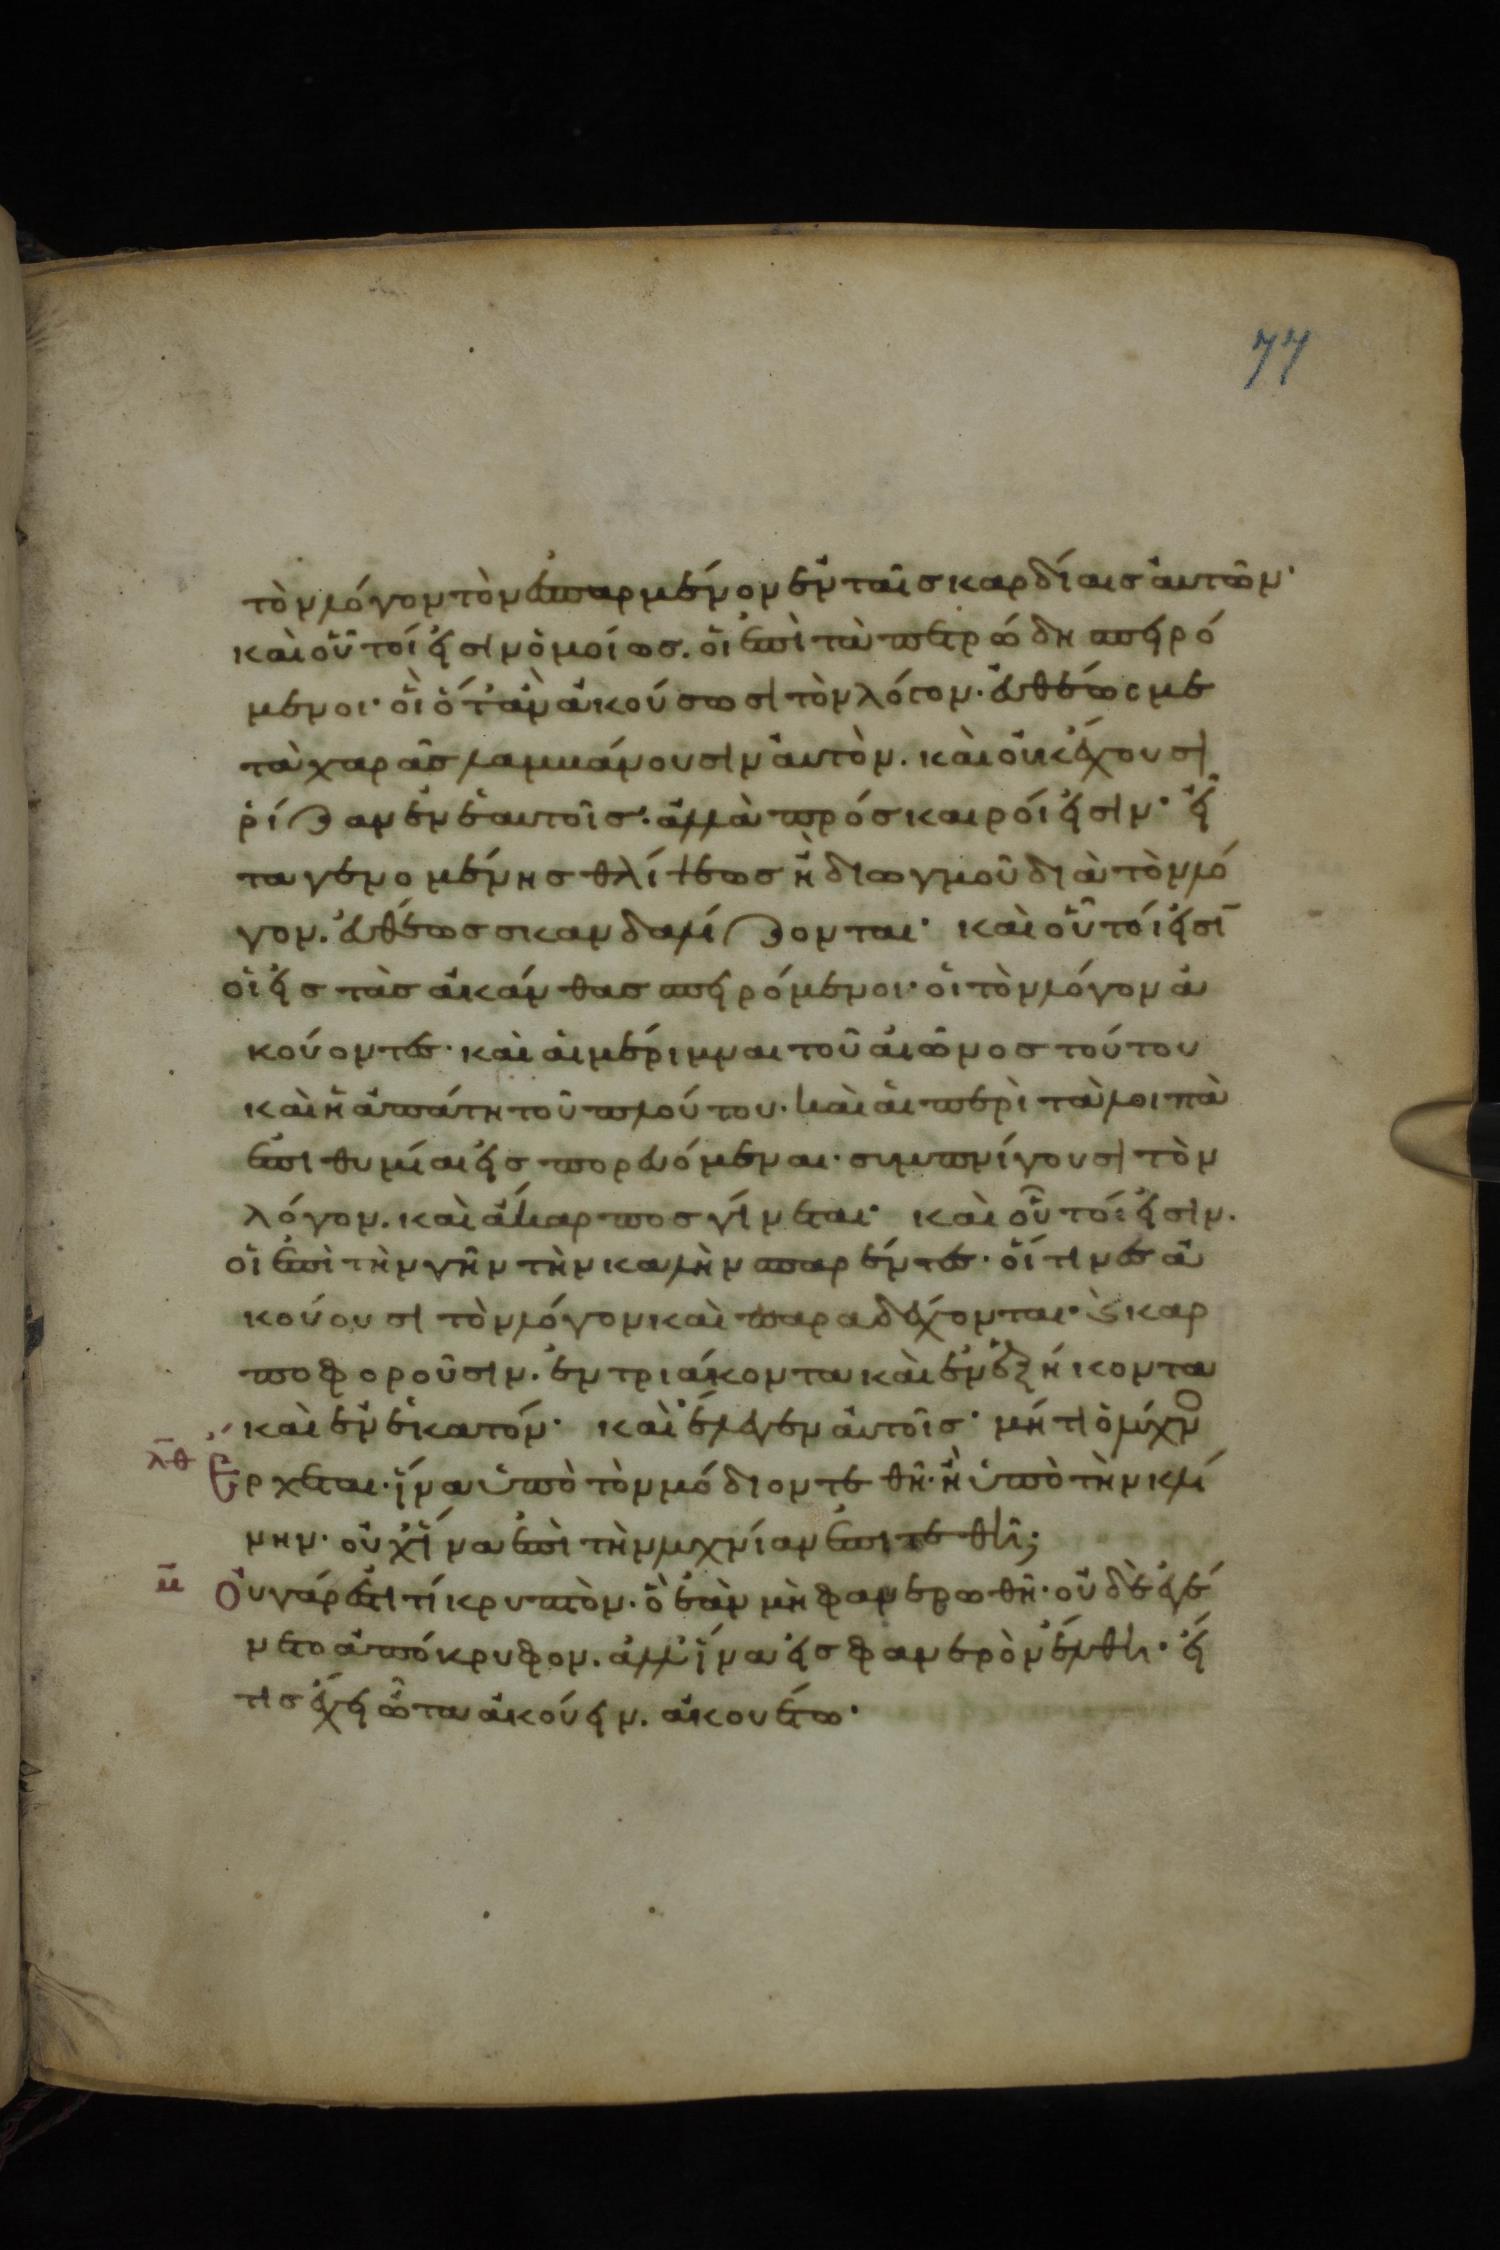 77
τὸν λόγον τὸν ἐσπαρμένον ἐν ταῖς καρδίαις αὐτῶν·
καὶ οὗτοί εἰσιν ὁμοίως. οἱ ἐπὶ τὰ πετρώδη σπειρό
μενοι· οἳ ὅταν ἀκούσωσι τὸν λόγον· εὐθέως με
τὰ χαρᾶς λαμβάνουσιν αὐτὸν. καὶ οὐκ ἔχουσι
ῥίζαν ἐν ἑαυτοῖς· ἀλλὰ πρόσκαιροί εἰσιν· εἶ
τα γενομένης θλίψεως ἢ διωγμοῦ διὰ τὸν λό
γον. εὐθέως σκανδαλίζονται· καὶ οὗτοί εἰσῑ
οἱ εἰς τὰς ἀκάνθας σπειρόμενοι· οἱ τὸν λόγον ἀ
κούοντες· καὶ αἱ μέριμναι τοῦ αἰῶνος τούτου
καὶ ἡ ἀπάτη τοῦ πλούτου· καὶ αἱ περὶ τὰ λοιπὰ
ἐπιθυμίαι εἰσπορευόμεναι· συμπνίγουσι τὸν
λόγον. καὶ ἄκαρπος γίνεται· καὶ οὗτοί εἰσιν.
οἱ ἐπὶ τὴν γῆν τὴν καλὴν σπαρέντες· οἵτινες ἀ
κούουσι τὸν λόγον καὶ παραδέχονται· ϗ καρ
ποφοροῦσιν. ἐν τριάκοντα καὶ ἐν ἑξήκοντα
καὶ ἐν ἑκατόν· καὶ ἔλεγεν αὐτοῖς· μήτι ὁ λύχνο
λθ Ἔρχεται· ἵνα ὑπὸ τὸν μόδιον τεθῆ· ἢ ὑπὸ τὴν κλί
νην· οὐχ ἵνα ἐπὶ τὴν λυχνίαν ἐπιτεθῆ;
μ Οὐ γάρ ἐστι τί κρυπτὸν· ὃ ἐὰν μὴ φανερωθῆ· οὐδὲ ἐγέ
νετο ἀπόκρυφον. ἀλλ' ἵνα εἰς φανερὸν ἔλθη· εἴ
τις ἔχει ὦτα ἀκούειν. ἀκουέτω·